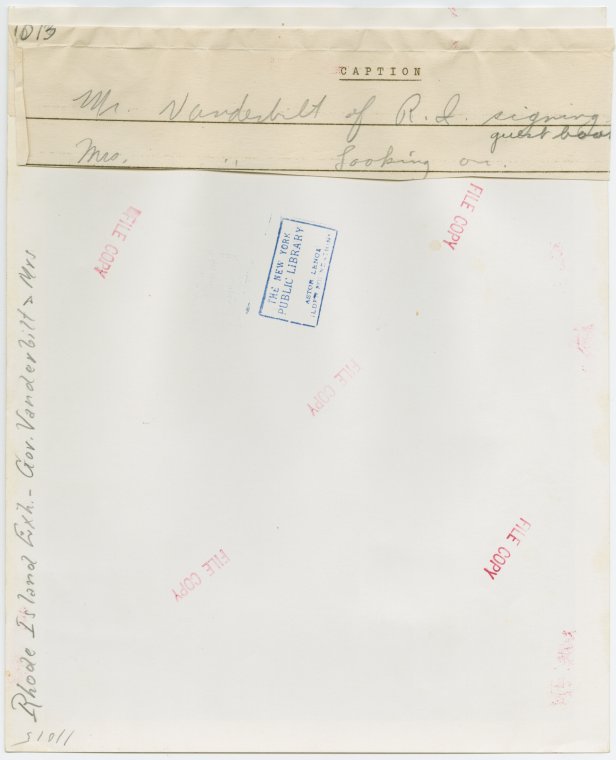 1013
CAPTION
Mr. Vanderbilt of R.I. signing
guest book
Mrs. " looking on.
FILE COPY
FILE COPY
THE NEW YORK
PUBLIC LIBRARY
ASTOR LENOX
FILE COPY
FILE COPY
FILE COPY
Rhode Island Exh. - Gov. Vanderbilt & Mrs